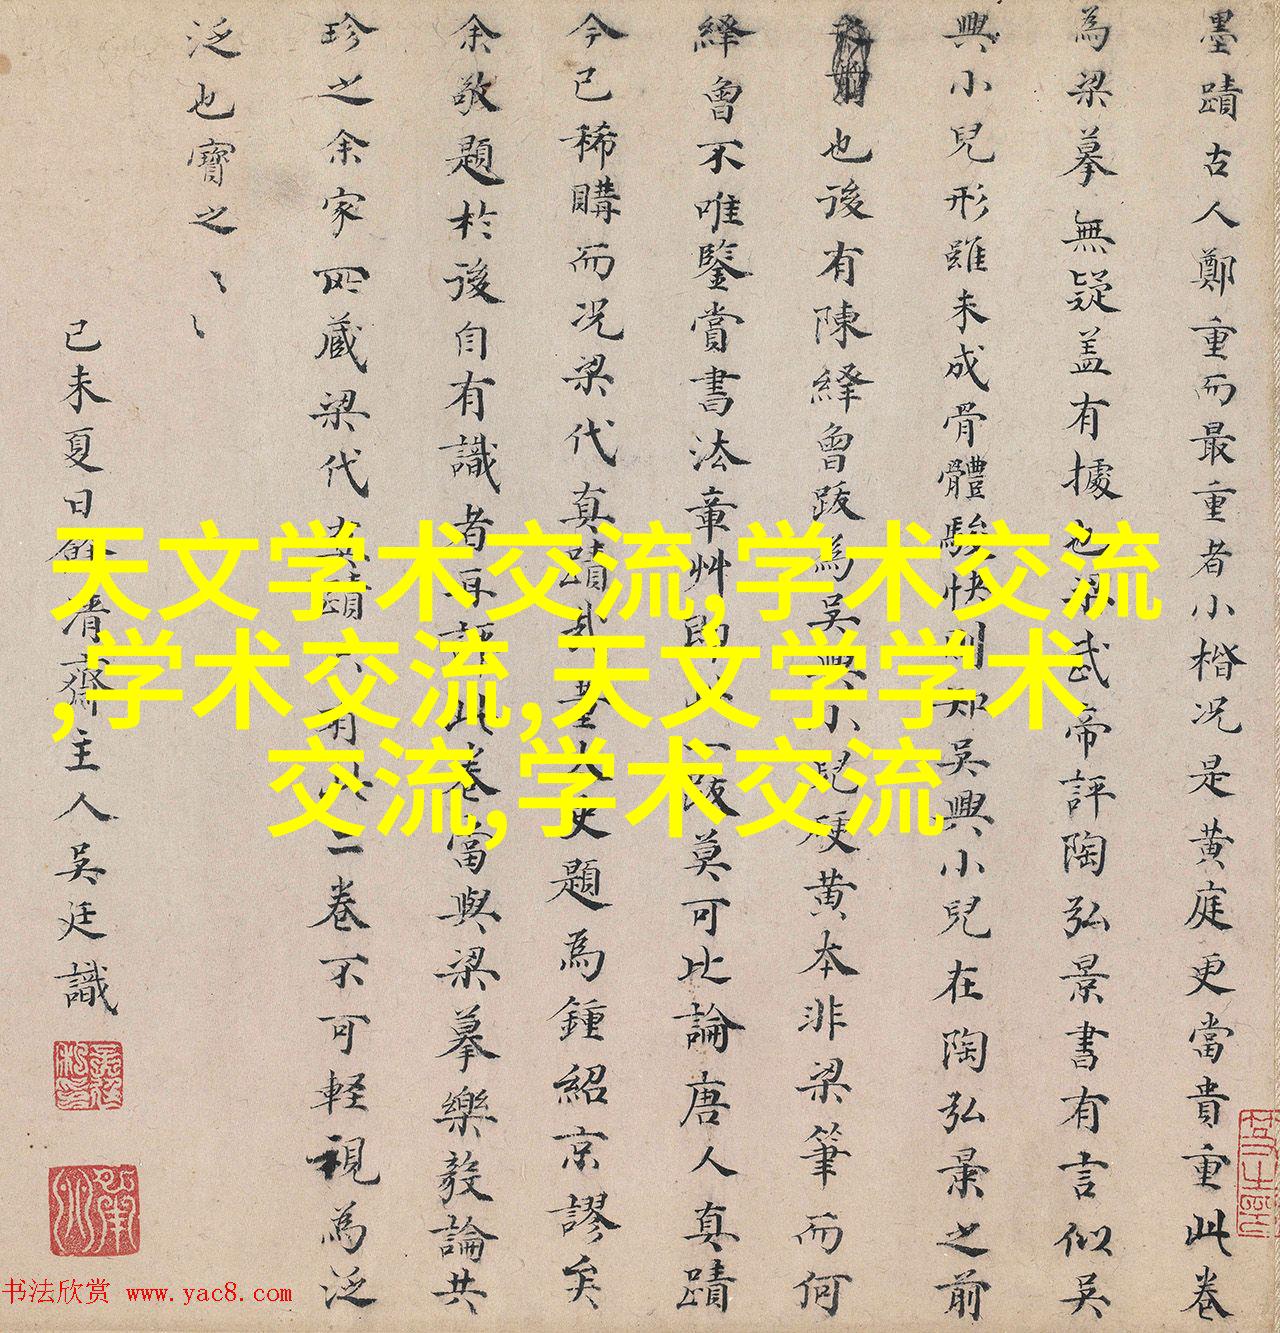 墨蹟古人鄭重而最重者小楷况是黄庭更當貴重此卷
為梁摹無疑盖有據也梁武帝評陶弘景書有言似吳
興小兒形雖未成骨體駿快則知吳興小兒在陶弘景之前
也後有陳繹曾跋為吳興小兒硬黄本非梁筆而何
繹曾不唯鑒賞書法章艸即此一跋莫可比論唐人真蹟
今已稀購而况梁代真蹟哉董太史題為鍾紹京謬矣
余敬題於後自有識者再評此卷當與梁摹樂毅論共
珍之余家所藏梁代真蹟只有此二卷不可輕視為泛
泛也寳之、、
己未夏日餘清齋主人吳廷識
天文学术交流,学术交流
,学术交流,天文学学术
交流,学术交流
书法欣赏 www.yac8.com